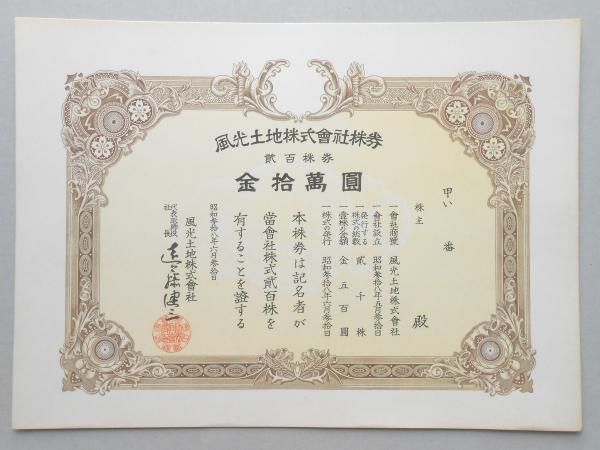 風光土地株式會社株券
貳百株券
金拾萬圓
甲い 番
株主 殿
一會社商號 風光土地株式會社
一會社設立 昭和參拾八年五月參拾日
一發行する株式の総数 貳千株
一壹株の金額 金五百圓
一株式の発行 昭和參拾八年六月參拾日
本株券は記名者が
當會社株式貳百株を
有することを證する
昭和參拾八年六月參拾日
風光土地株式會社
代表取締役
社長